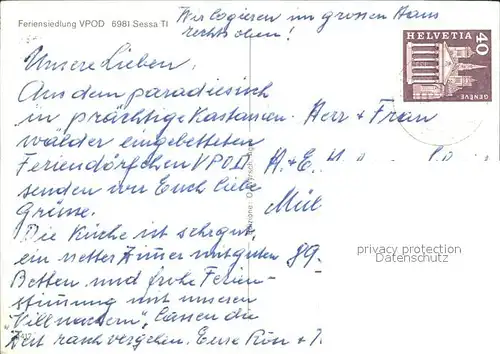 Feriensiedlung VPOD 6981 Sessa TI
Wir logieren im grossen Haus
rechts oben!
HELVETIA
40
GENÈVE
Unsere Lieben.
Aus dem paradiesisch
in prächtige Kastanien-
wälder eingebetteten
Feriendörfchen VPOD
senden wir Euch liebe
Grüsse.
Die Küche ist sehr gut,
ein nettes Zimmer mit guten
Betten und frohe Ferien-
stimmung mit unseren
"Villnachern", lassen die
Zeit rasch vergehen. Eure
Herr + Frau
H. + E.
89.
privacy protection
Datenschutz